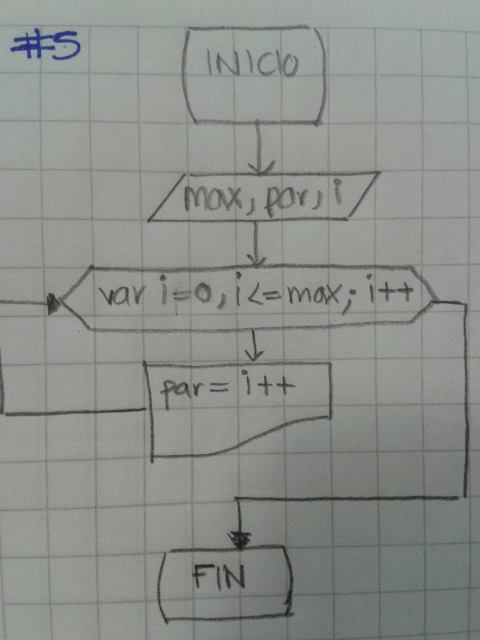 #5
INICIO
max, par, i
var i=0, i<=max; i++
par= i++
FIN